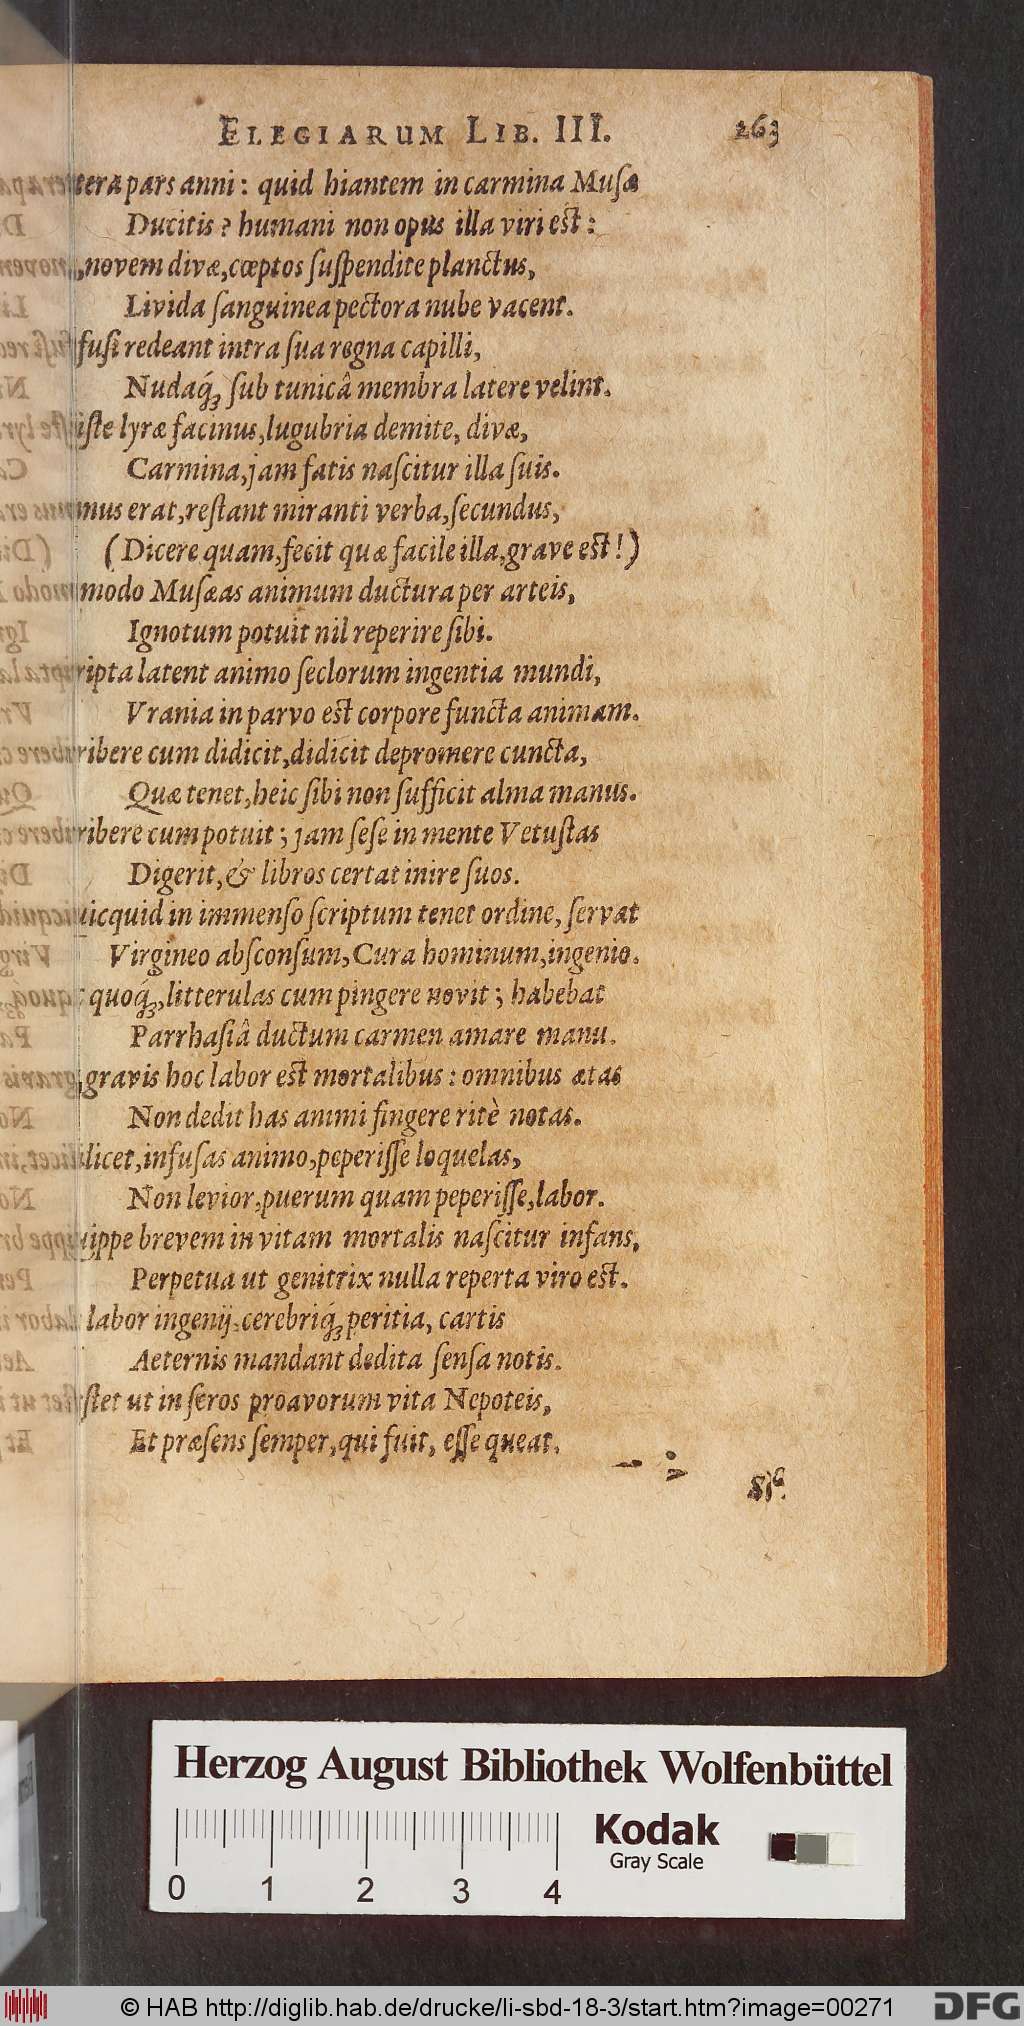 ELEGIARUM LIB. III. 263
tera pars anni: quid hiantem in carmina Musæ
Ducitis? humani non opus illa viri est:
, novem divæ, cœptos suspendite planctus,
Livida sanguinea pectora nube vacent.
fusi redeant intra sua regna capilli,
Nudaq́ꝫ sub tunicâ membra latere velint.
iste lyræ facinus, lugubria demite, divæ,
Carmina, jam fatis nascitur illa suis.
mus erat, restant miranti verba, secundus,
(Dicere quam, fecit quæ facile illa, grave est!)
modo Musæas animum ductura per arteis,
Ignotum potuit nil reperire sibi.
ripta latent animo seclorum ingentia mundi,
Vrania in parvo est corpore functa animam.
ribere cum didicit, didicit depromere cuncta,
Quæ tenet, heic sibi non sufficit alma manus.
ribere cum potuit; jam sese in mente Vetustas
Digerit, & libros certat inire suos.
uicquid in immenso scriptum tenet ordine, servat
Virgineo absconsum, Cura hominum, ingenio.
quoq́ꝫ, litterulas cum pingere novit; habebat
Parrhasiâ ductum carmen amare manu.
, gravis hoc labor est mortalibus: omnibus ætas
Non dedit has animi fingere ritè notas.
licet, infusas animo, peperisse loquelas,
Non levior, puerum quam peperisse, labor.
uippe brevem in vitam mortalis nascitur infans,
Perpetua ut genitrix nulla reperta viro est.
labor ingenij, cerebriq́ꝫ peritia, cartis
Aeternis mandant dedita sensa notis.
stet ut in seros proavorum vita Nepoteis,
Et præsens semper, qui fuit, esse queat.
Herzog August Bibliothek Wolfenbüttel
Kodak
Gray Scale
0 1 2 3 4
© HAB http://diglib.hab.de/drucke/li-sbd-18-3/start.htm?image=00271 DFG